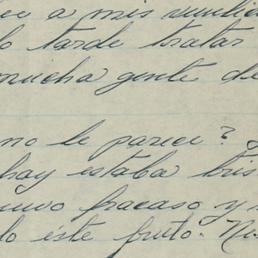 a mis
lo tarde tratar
mucha gente de
no le parece?
hay estaba tris
uevo fracaso y
do éste fruto. No